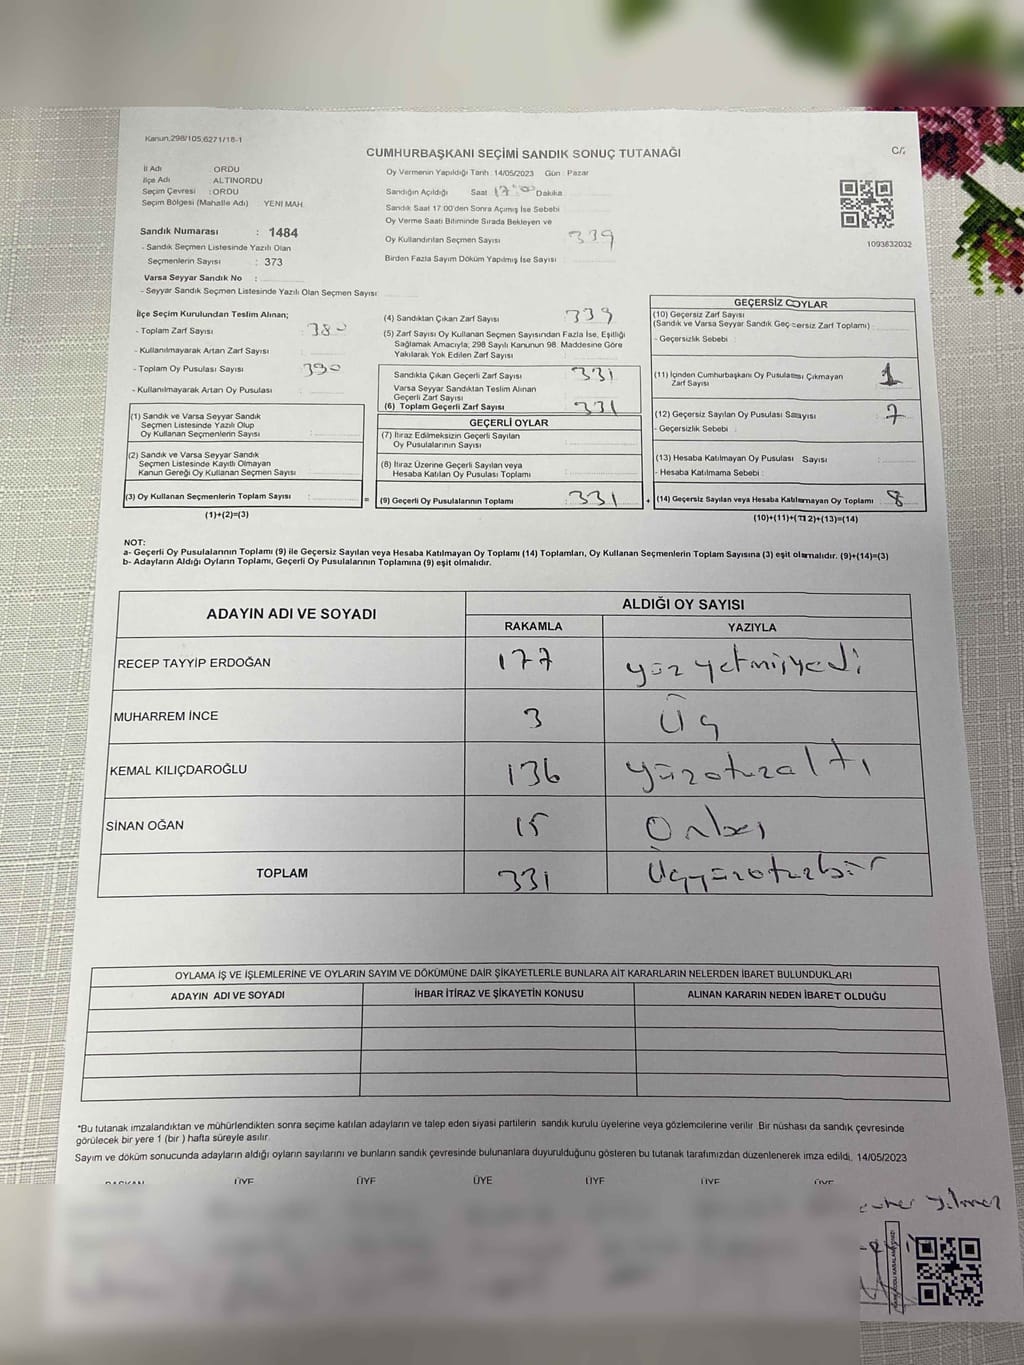 Kanun.298/105,6271/18-1
CUMHURBAŞKANI SEÇİMİ SANDIK SONUÇ TUTANAĞI
İl Adı : ORDU
İlçe Adı : ALTINORDU
Seçim Çevresi : ORDU
Seçim Bölgesi (Mahalle Adı) YENİ MAH.
Sandık Numarası : 1484
- Sandık Seçmen Listesinde Yazılı Olan
Seçmenlerin Sayısı : 373
Varsa Seyyar Sandık No :
- Seyyar Sandık Seçmen Listesinde Yazılı Olan Seçmen Sayısı:
Oy Vermenin Yapıldığı Tarih :14/05/2023 Gün : Pazar
Sandığın Açıldığı Saat 17:00 Dakika
Sandık Saat 17:00'den Sonra Açımış İse Sebebi
Oy Verme Saati Bitiminde Sırada Bekleyen ve
Oy Kullandırılan Seçmen Sayısı 339
Birden Fazla Sayım Döküm Yapılmış İse Sayısı
1093632032
İlçe Seçim Kurulundan Teslim Alınan;
- Toplam Zarf Sayısı : 380
- Kullanılmayarak Artan Zarf Sayısı
- Toplam Oy Pusulası Sayısı : 390
- Kullanılmayarak Artan Oy Pusulası
(1) Sandık ve Varsa Seyyar Sandık
Seçmen Listesinde Yazılı Olup
Oy Kullanan Seçmenlerin Sayısı
(2) Sandık ve Varsa Seyyar Sandık
Seçmen Listesinde Kayıtlı Olmayan
Kanun Gereği Oy Kullanan Seçmen Sayısı
(3) Oy Kullanan Seçmenlerin Toplam Sayısı : =
(1)+(2)=(3)
(4) Sandıktan Çıkan Zarf Sayısı 339
(5) Zarf Sayısı Oy Kullanan Seçmen Sayısından Fazla İse, Eşitliği
Sağlamak Amacıyla; 298 Sayılı Kanunun 98. Maddesine Göre
Yakılarak Yok Edilen Zarf Sayısı
Sandıkta Çıkan Geçerli Zarf Sayısı 331
Varsa Seyyar Sandıktan Teslim Alınan
Geçerli Zarf Sayısı
(6) Toplam Geçerli Zarf Sayısı 331
GEÇERLİ OYLAR
(7) İtiraz Edilmeksizin Geçerli Sayılan
Oy Pusulalarının Sayısı
(8) İtiraz Üzerine Geçerli Sayılan veya
Hesaba Katılan Oy Pusulası Toplamı
(9) Geçerli Oy Pusulalarının Toplamı 331 +
GEÇERSİZ OYLAR
(10) Geçersiz Zarf Sayısı
(Sandık ve Varsa Seyyar Sandık Geçersiz Zarf Toplamı)
- Geçersizlik Sebebi
(11) İçinden Cumhurbaşkanı Oy Pusulası Çıkmayan
Zarf Sayısı 1
(12) Geçersiz Sayılan Oy Pusulası Sayısı 7
- Geçersizlik Sebebi
(13) Hesaba Katılmayan Oy Pusulası Sayısı
- Hesaba Katılmama Sebebi
(14) Geçersiz Sayılan veya Hesaba Katılmayan Oy Toplamı 8
(10)+(11)+(12)+(13)=(14)
NOT:
a- Geçerli Oy Pusulalarının Toplamı (9) ile Geçersiz Sayılan veya Hesaba Katılmayan Oy Toplamı (14) Toplamları, Oy Kullanan Seçmenlerin Toplam Sayısına (3) eşit olmalıdır. (9)+(14)=(3)
b- Adayların Aldığı Oyların Toplamı, Geçerli Oy Pusulalarının Toplamına (9) eşit olmalıdır.
ADAYIN ADI VE SOYADI
ALDIĞI OY SAYISI
RAKAMLA YAZIYLA
RECEP TAYYİP ERDOĞAN 177 yüzyetmişyedi
MUHARREM İNCE 3 Üç
KEMAL KILIÇDAROĞLU 136 yüzotuzaltı
SİNAN OĞAN 15 Onbeş
TOPLAM 331 Üçyüzotuzbir
OYLAMA İŞ VE İŞLEMLERİNE VE OYLARIN SAYIM VE DÖKÜMÜNE DAİR ŞİKAYETLERLE BUNLARA AİT KARARLARIN NELERDEN İBARET BULUNDUKLARI
ADAYIN ADI VE SOYADI İHBAR İTİRAZ VE ŞİKAYETİN KONUSU ALINAN KARARIN NEDEN İBARET OLDUĞU
*Bu tutanak imzalandıktan ve mühürlendikten sonra seçime katılan adayların ve talep eden siyasi partilerin sandık kurulu üyelerine veya gözlemcilerine verilir .Bir nüshası da sandık çevresinde
görülecek bir yere 1 (bir ) hafta süreyle asılır.
Sayım ve döküm sonucunda adayların aldığı oyların sayılarını ve bunların sandık çevresinde bulunanlara duyurulduğunu gösteren bu tutanak tarafımızdan düzenlenerek imza edildi. 14/05/2023
BAŞKAN ÜYE ÜYE ÜYE ÜYE ÜYE ÜYE
yılmaz